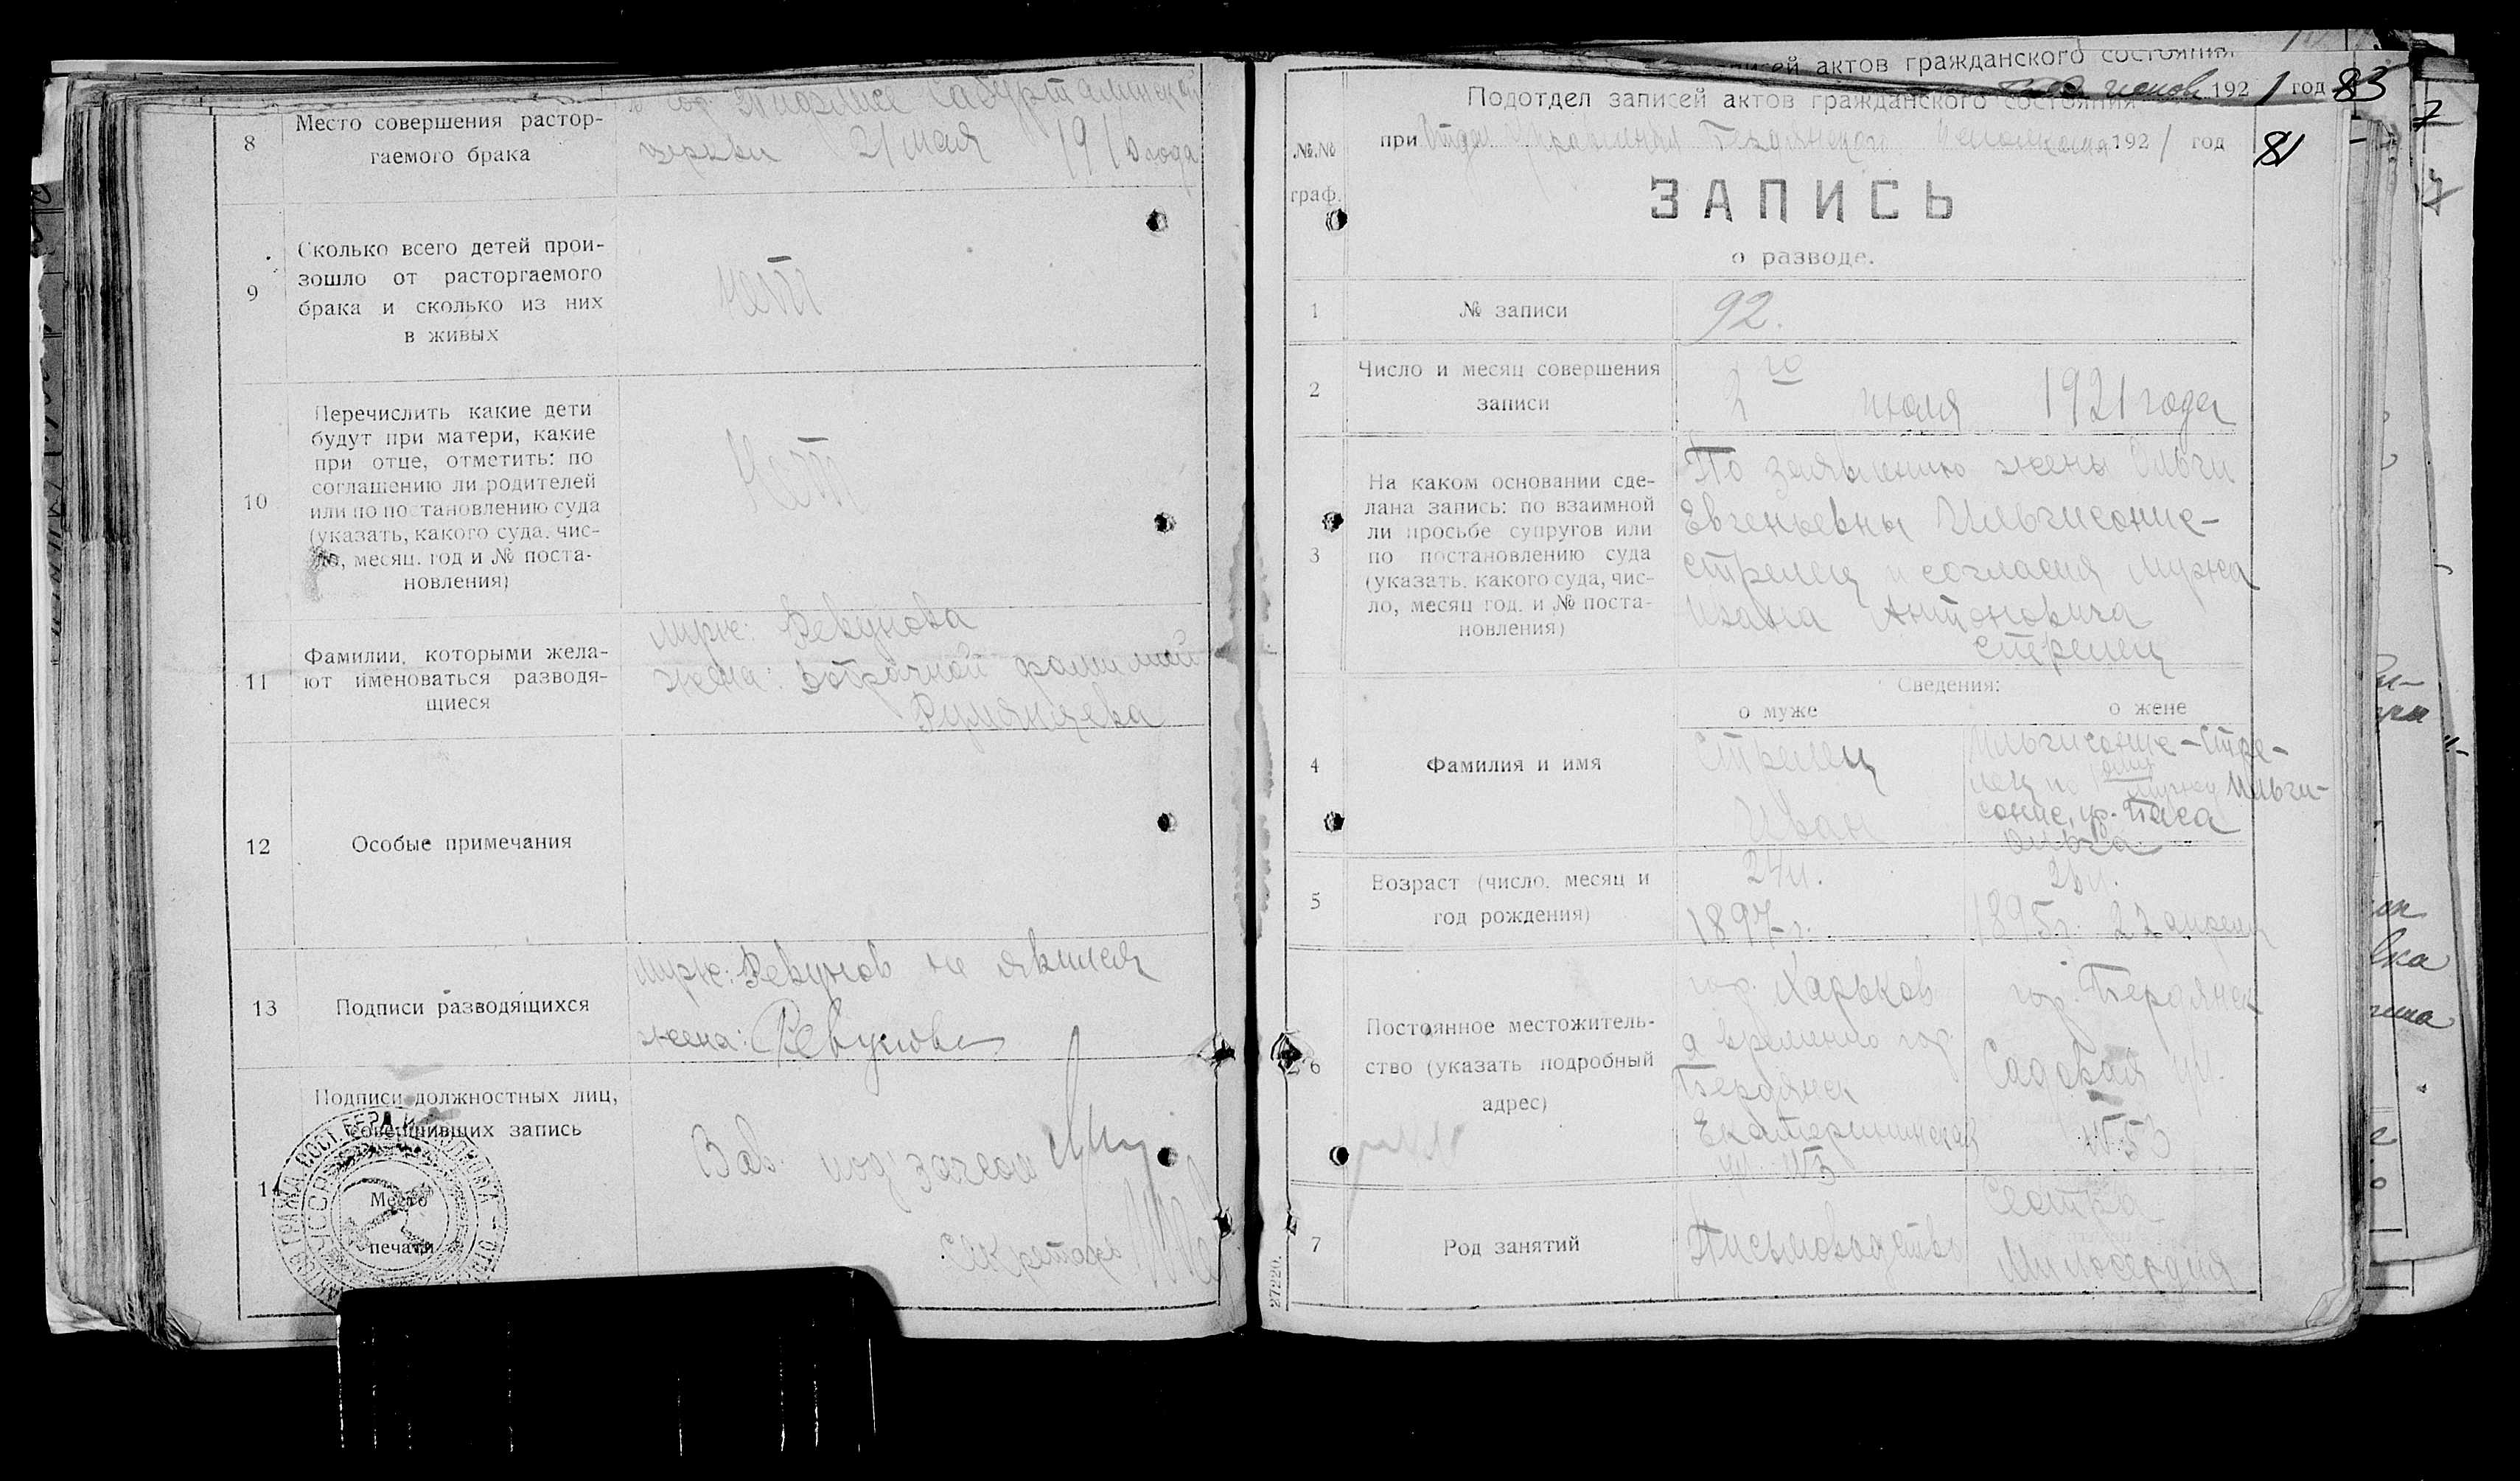 8
Место совершения растор-
гаемого брака
церкви 21 мая 191 года
9
Сколько всего детей прои-
зошло от расторгаемого
брака и сколько из них
в живых
нет
10
Перечислить какие дети
будут при матери, какие
при отце, отметить: по
соглашению ли родителей
или по постановлению суда
(указать, какого суда, чис-
ло, месяц, год и № поста-
новления)
Нет
11
Фамилии, которыми жела-
ют именоваться разводя-
щиеся
муж: Ревунова
жена: добрачной фамилией
Румянцева
12
Особые примечания
13
Подписи разводящихся
муж: Ревунов не явился
жена: Ревунова
14
Подписи должностных лиц,
совершивших запись
Место
печати
Зав. под'загсом
Секретарь
актов гражданского состояния
1921 год 83
Подотдел записей актов гражданского состояния
при Отдел Управления Бердянского Исполкома 1921 год
81
№№
граф.
ЗАПИСЬ
о разводе.
1
№ записи
92.
2
Число и месяц совершения
записи
2го июля 1921 года
3
На каком основании сде-
лана запись: по взаимной
ли просьбе супругов или
по постановлению суда
(указать, какого суда, чис-
ло, месяц год, и № поста-
новления)
По заявлению жены Ольги
Евгеньевны
Стрелец и согласия мужа
Ивана Антоновича
Стрелец
Сведения:
о муже
о жене
4
Фамилия и имя
Стрелец
Иван
Ольга
5
Возраст (число, месяц и
год рождения)
24 л.
1897 г.
26 л.
1895 г. 22 апреля
6
Постоянное местожитель-
ство (указать подробный
адрес)
гор. Харьков
а временно гор.
Бердянск
Екатерининская
ул. №3
гор. Бердянск
Садовая ул.
№53
7
Род занятий
Письмоводство
Сестра
Милосердия
27220.